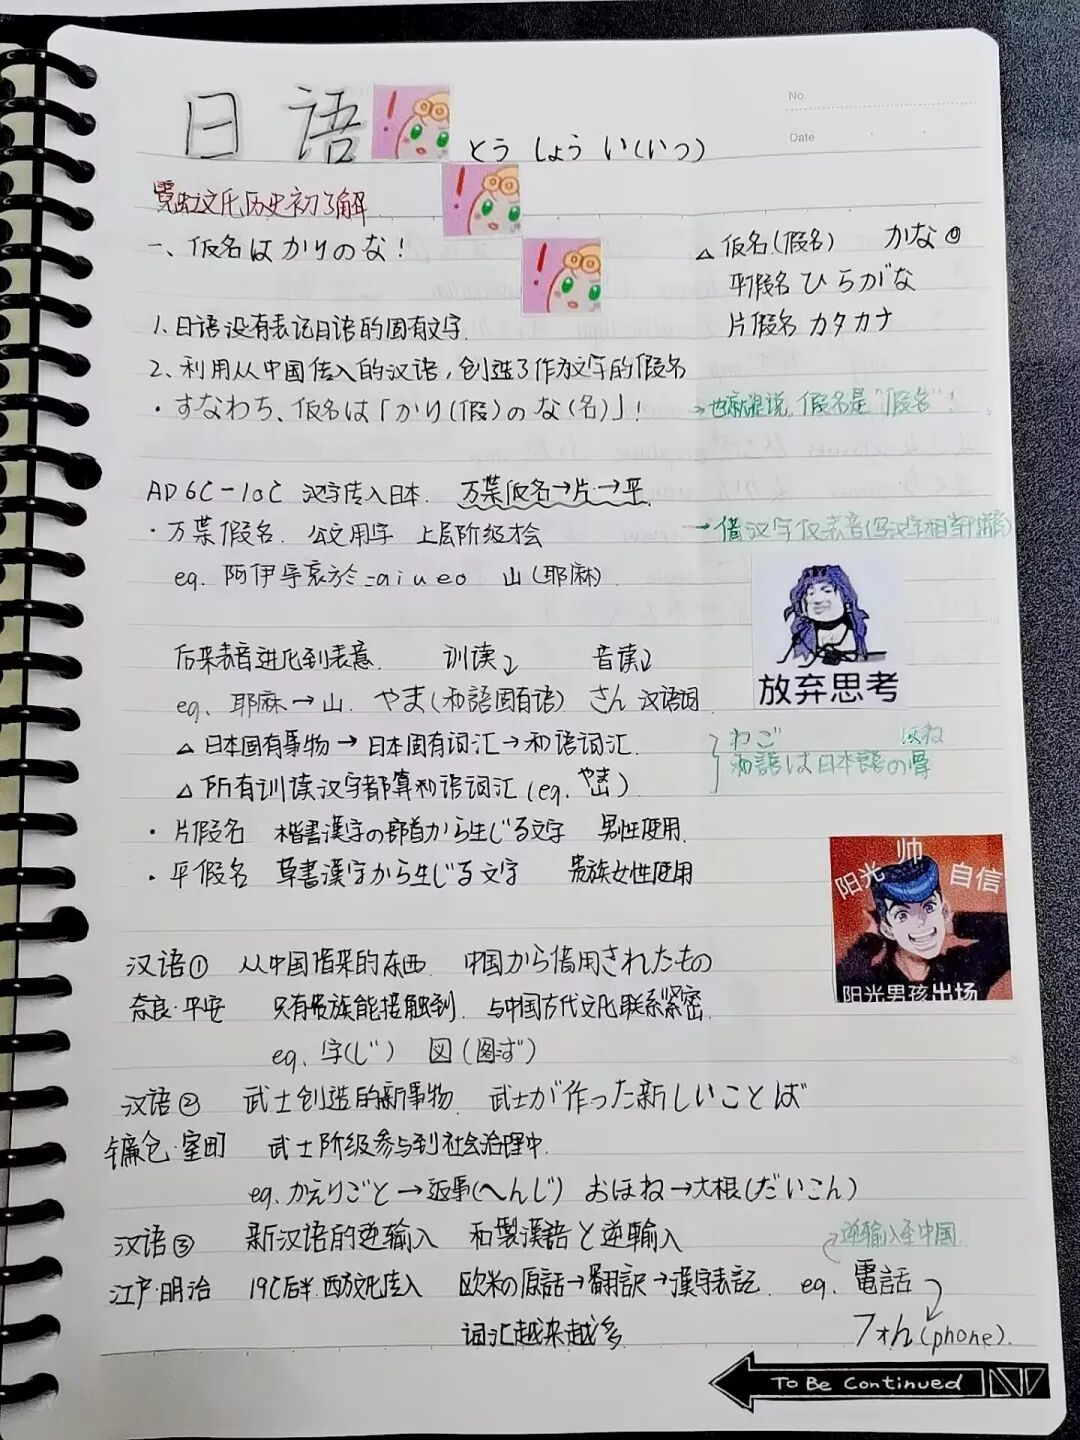 No.
Date
日语 とう しょう い(いつ)
霓虹文化历史初了解
一、仮名は かりのな!
△ 仮名(假名) かな⓪
平假名 ひらがな
片假名 カタカナ
1.日语没有表记日语的固有文字.
2、利用从中国传入的汉语,创造了作为文字的假名
・すなわち、仮名は「かり(假)の な(名)」!
→也就是说,假名是"假名"!
AD 6C-10C 汉字传入日本. 万葉仮名→片→平.
・万葉假名. 公文用字 上层阶级才会
→借汉字仅表音
eq. 阿伊宇 於=aiueo 山(耶麻)
放弃思考
后来表音进化到表意. 训读↓ 音读↓
eq、耶麻→山. やま(和語固有语) さん 汉语词
△日本固有事物→日本固有词汇→和语词汇.
△所有训读汉字都算和语词汇(eq. やま)
わご ほね
和語は日本語の骨
・片假名 楷書漢字の部首から生じる文字 男性使用.
・平假名 草書漢字から生じる文字 贵族女性使用
阳光 帅 自信
阳光男孩出场
汉语① 从中国借来的东西. 中国から借用されたもの
奈良·平安 只有贵族能接触到. 与中国古代文化联系紧密.
eq、字(じ) 図(图ず)
汉语② 武士创造的新事物. 武士が作った新しいことば
镰仓·室町 武士阶级参与到社会治理中.
eq. かえりごと→返事(へんじ) おほね→大根(だいこん)
汉语③ 新汉语的逆输入 和製漢語と逆輸入
→逆输入至中国.
江户·明治 19C后半.西方文化传入 欧米の原話→翻訳→漢字表記. eq. 電話
词汇越来越多 フォん(phone).
To Be Continued